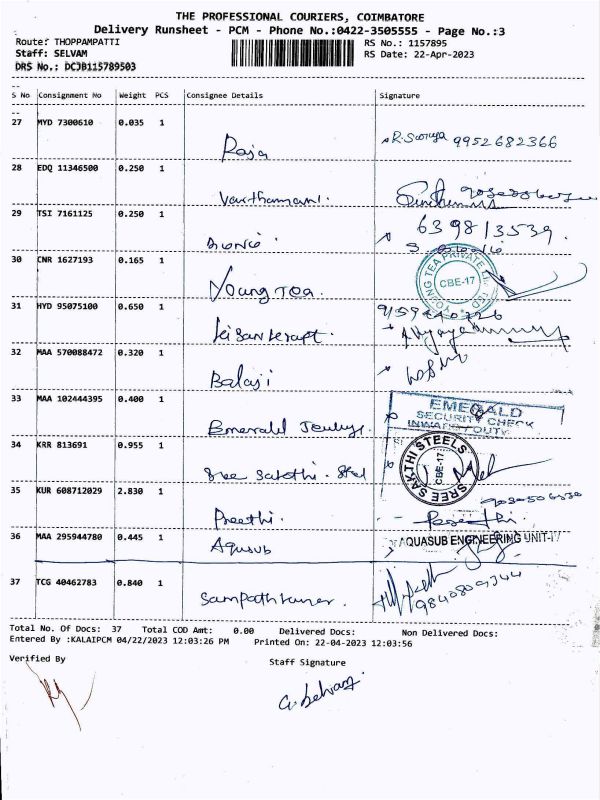 THE PROFESSIONAL COURIERS, COIMBATORE
Delivery Runsheet - PCM - Phone No.:0422-3505555 - Page No.:3
Route: THOPPAMPATTI
RS No.: 1157895
Staff: SELVAM
RS Date: 22-Apr-2023
DRS No.: DCJB115789503
S No Consignment No Weight PCS Consignee Details Signature
27 MYD 7300610 0.035 1 Raja 9952682366
28 EDQ 11346500 0.250 1 Varthamani.
29 TSI 7161125 0.250 1 639813539.
30 CNR 1627193 0.165 1 Young Tea.
YOUNG TEA PRIVATE LIMITED
CBE-17
31 HYD 95075100 0.650 1
32 MAA 570088472 0.320 1 Balaji
33 MAA 102444395 0.400 1 Emerald
EMERALD
SECURITY CHECK
INWARD / OUTWARD
34 KRR 813691 0.955 1 Sree Sakthi. Steel
SREE SAKTHI STEELS
CBE-17
35 KUR 608712029 2.830 1 Preethi.
36 MAA 295944780 0.445 1 Aqusub
AQUASUB ENGINEERING UNIT-
37 TCG 40462783 0.840 1 Sampathkumar.
Total No. Of Docs: 37 Total COD Amt: 0.00 Delivered Docs: Non Delivered Docs:
Entered By :KALAIPCM 04/22/2023 12:03:26 PM Printed On: 22-04-2023 12:03:56
Verified By
Staff Signature
G. Selvam